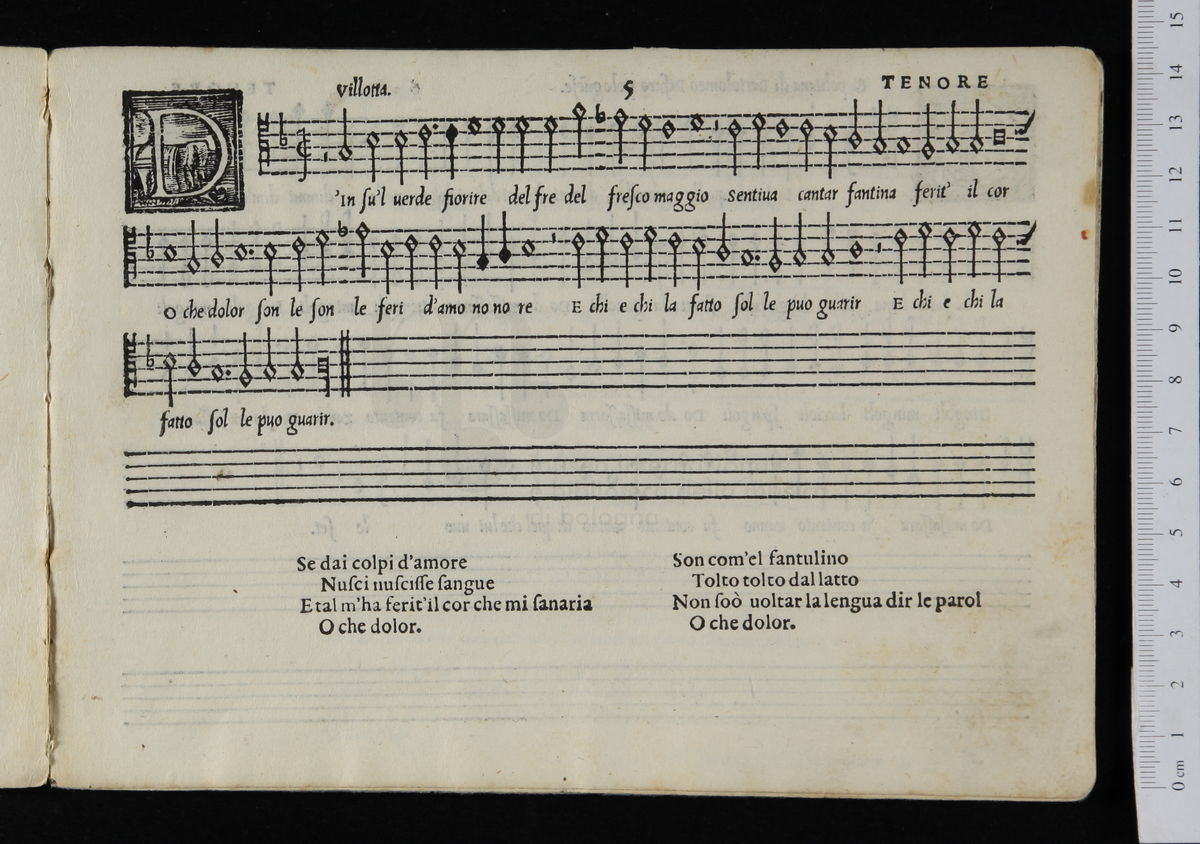 Villotta. 5 TENORE
D'In su'l uerde fiorire del fre del fresco maggio sentiua cantar fantina ferit' il cor
O che dolor son le son le feri d'amo no no re E chi e chi la fatto sol le puo guarir E chi e chi la
fatto sol le puo guarir.
Se dai colpi d'amore
Nusci nuscisse sangue
E tal m'ha ferit'il cor che mi sanaria
O che dolor.
Son com'el fantulino
Tolto tolto dal latto
Non soò uoltar la lengua dir le parol
O che dolor.
15
14
13
12
11
10
9
8
7
6
5
4
3
2
1
0 cm